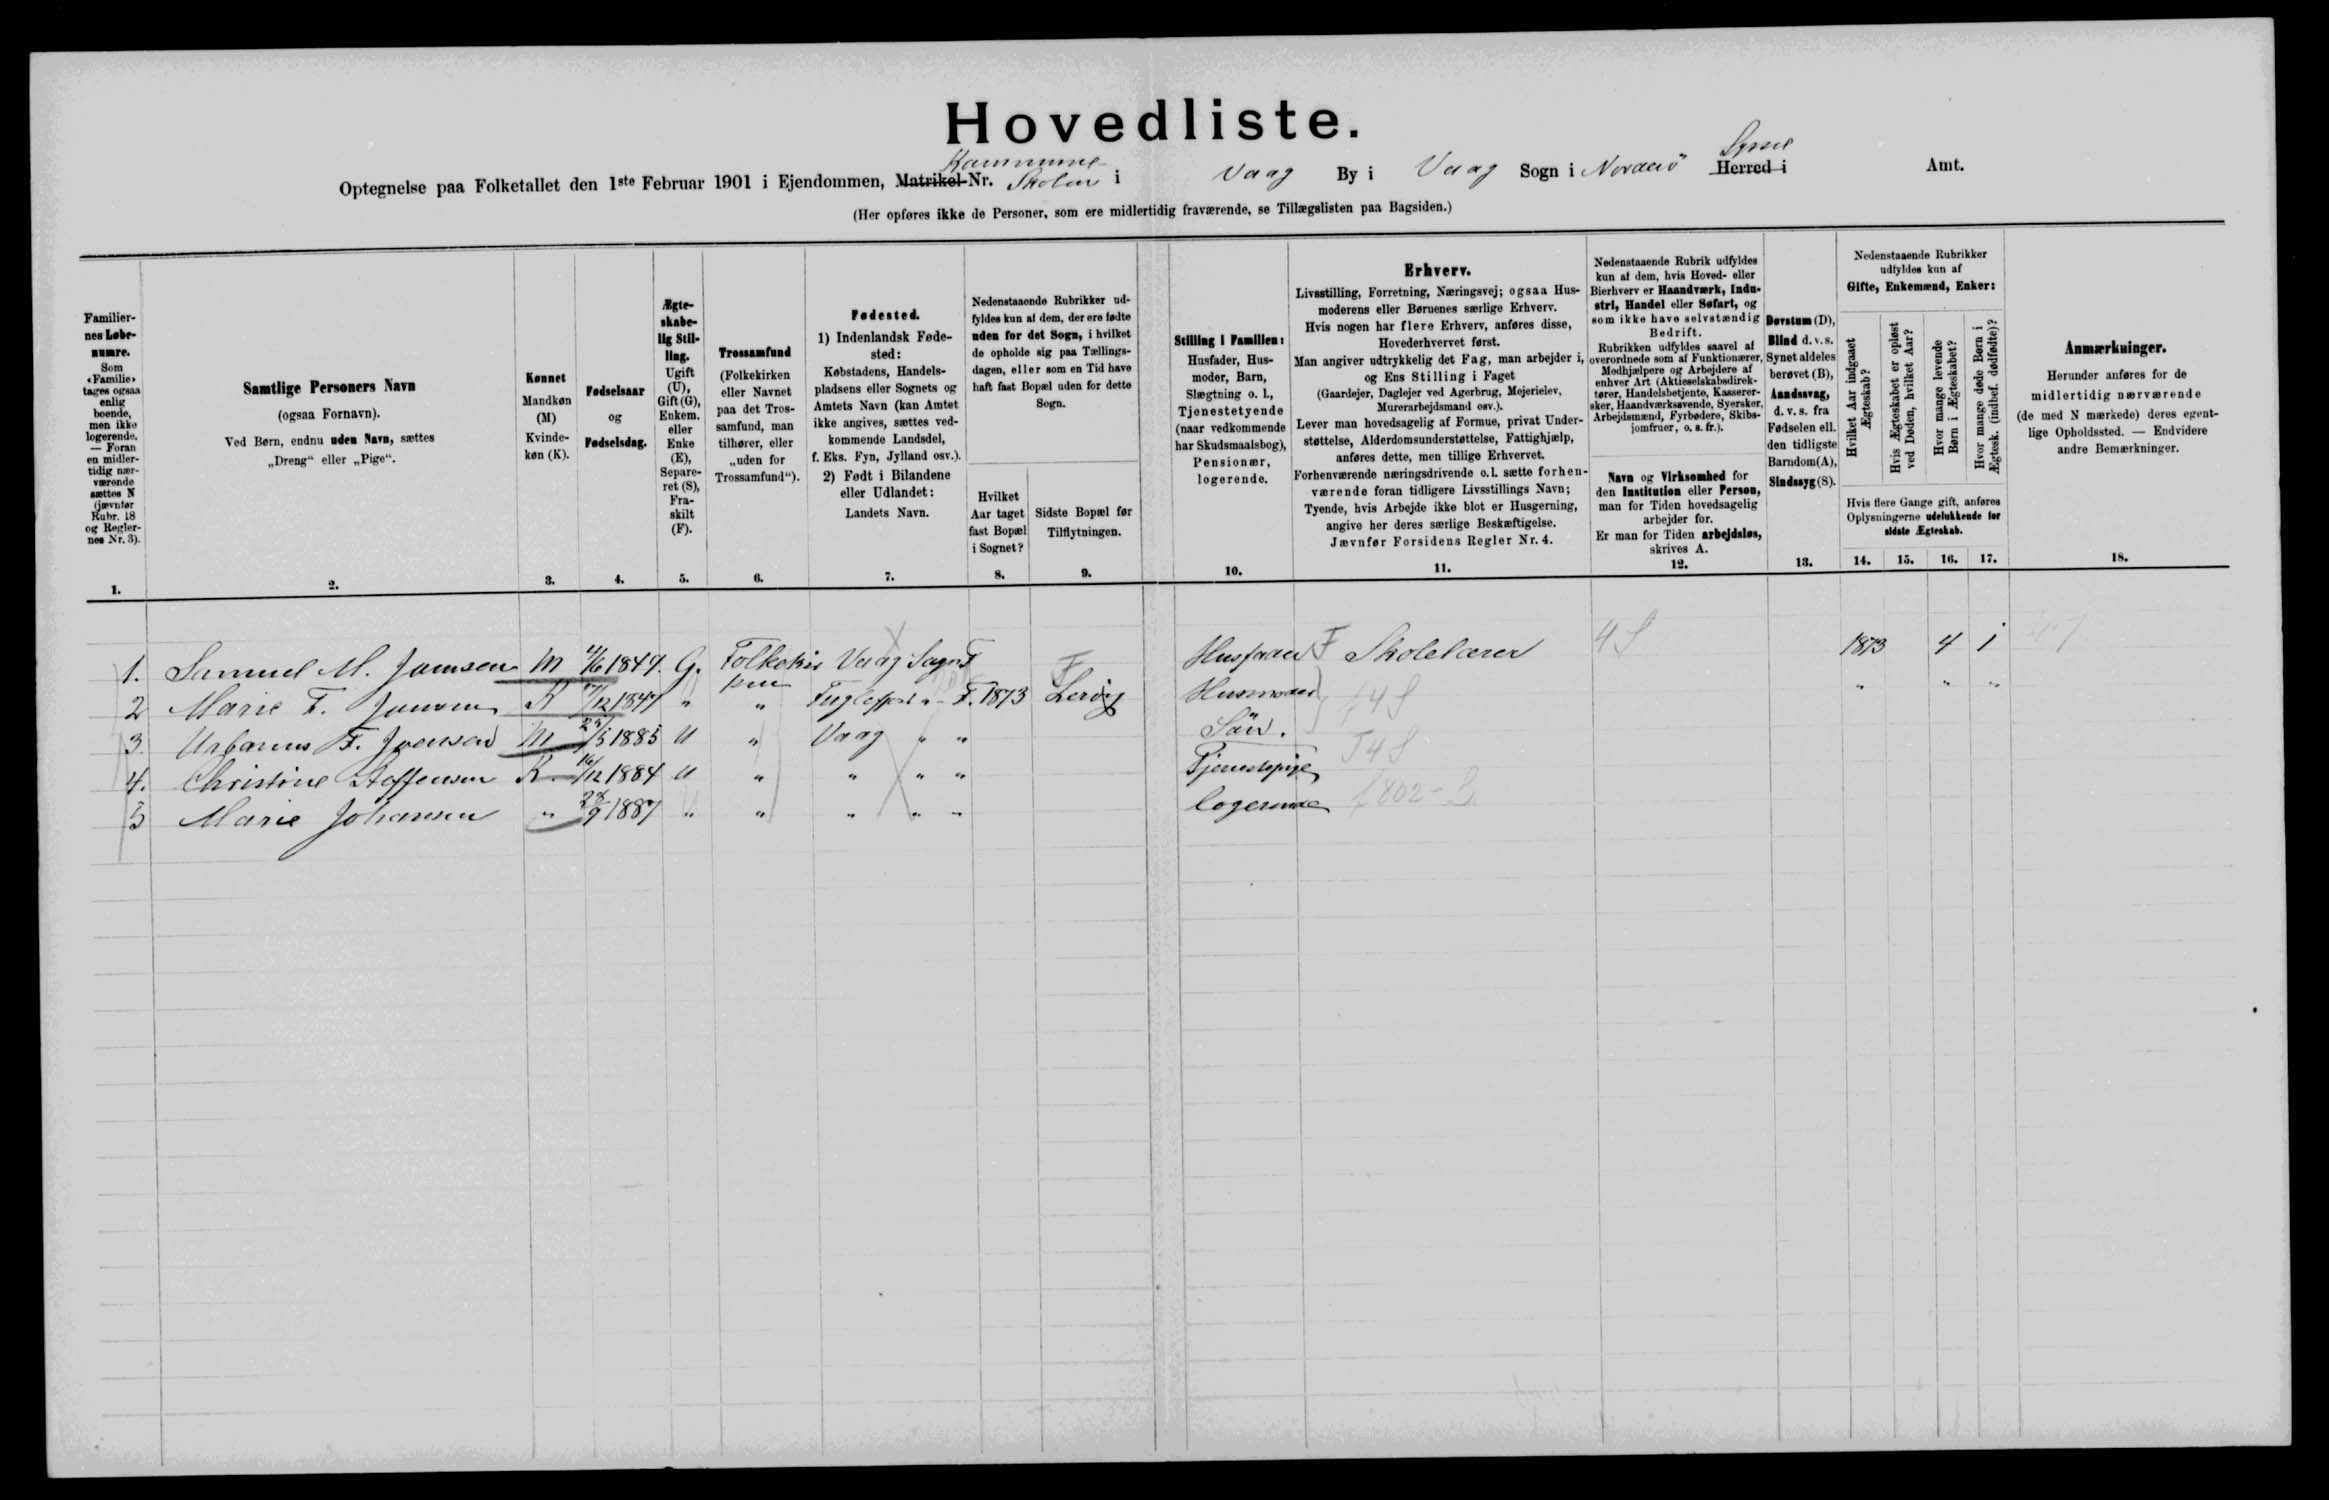 Hovedliste.
Optegnelse paa Folketallet den 1ste Februar 1901 i Ejendommen, Matrikel-Nr. Kommune Skolen i Vaag By i Vaag Sogn i Norderö Syssel Herred i Amt.
(Her opføres ikke de Personer, som ere midlertidig fraværende, se Tillægslisten paa Bagsiden.)
Familier-
nes Løbe-
numre.
Som
«Familie»
tages ogsaa
enlig
boende,
men ikke
logerende.
— Foran
en midler-
tidig nær-
værende
sættes N
(jævnfør
Rubr. 18
og Regler-
nes Nr. 3).
1.
Samtlige Personers Navn
(ogsaa Fornavn).
Ved Børn, endnu uden Navn, sættes
„Dreng“ eller „Pige“.
2.
Kønnet
Mandkøn
(M)
Kvinde-
køn (K).
3.
Fødselsaar
og
Fødselsdag.
4.
Ægte-
skabe-
lig Stil-
ling.
Ugift
(U),
Gift (G),
Enkem.
eller
Enke
(E),
Separe-
ret (S),
Fra-
skilt
(F).
5.
Trossamfund
(Folkekirken
eller Navnet
paa det Tros-
samfund, man
tilhører, eller
„uden for
Trossamfund“).
6.
Fødested.
1) Indenlandsk Føde-
sted:
Købstadens, Handels-
pladsens eller Sognets og
Amtets Navn (kan Amtet
ikke angives, sættes ved-
kommende Landsdel,
f. Eks. Fyn, Jylland osv.).
2) Født i Bilandene
eller Udlandet:
Landets Navn.
7.
Nedenstaaende Rubrikker ud-
fyldes kun af dem, der ere fødte
uden for det Sogn, i hvilket
de opholde sig paa Tællings-
dagen, eller som en Tid have
haft fast Bopæl uden for dette
Sogn.
Hvilket
Aar taget
fast Bopæl
i Sognet?
8.
Sidste Bopæl før
Tilflytningen.
9.
Stilling i Familien:
Husfader, Hus-
moder, Barn,
Slægtning o. l.,
Tjenestetyende
(naar vedkommende
har Skudsmaalsbog),
Pensionær,
logerende.
10.
Erhverv.
Livsstilling, Forretning, Næringsvej; ogsaa Hus-
moderens eller Børnenes særlige Erhverv.
Hvis nogen har flere Erhverv, anføres disse,
Hovederhvervet først.
Man angiver udtrykkelig det Fag, man arbejder i,
og Ens Stilling i Faget
(Gaardejer, Daglejer ved Agerbrug, Mejerielev,
Murerarbejdsmand osv.).
Lever man hovedsagelig af Formue, privat Under-
støttelse, Alderdomsunderstøttelse, Fattighjælp,
anføres dette, men tillige Erhvervet.
Forhenværende næringsdrivende o.l. sætte forhen-
værende foran tidligere Livsstillings Navn;
Tyende, hvis Arbejde ikke blot er Husgerning,
angive her deres særlige Beskæftigelse.
Jævnfør Forsidens Regler Nr. 4.
11.
Nedenstaaende Rubrik udfyldes
kun af dem, hvis Hoved- eller
Bierhverv er Haandværk, Indu-
stri, Handel eller Søfart, og
som ikke have selvstændig
Bedrift.
Rubrikken udfyldes saavel af
overordnede som af Funktionærer,
Medhjælpere og Arbejdere af
enhver Art (Aktieselskabsdirek-
tører, Handelsbetjente, Kasserer-
sker, Haandværkssvende, Syersker,
Arbejdsmænd, Fyrbødere, Skibs-
jomfruer, o. s. fr.).
Navn og Virksomhed for
den Institution eller Person,
man for Tiden hovedsagelig
arbejder for.
Er man for Tiden arbejdsløs,
skrives A.
12.
Døvstum (D),
Blind d. v. s.
Synet aldeles
berøvet (B),
Aandssvag,
d. v. s. fra
Fødselen ell.
den tidligste
Barndom(A),
Sindssyg(S).
13.
Nedenstaaende Rubrikker
udfyldes kun af
Gifte, Enkemænd, Enker:
Hvilket Aar indgaaet
Ægteskab?
Hvis Ægteskabet er opløst
ved Døden, hvilket Aar?
Hvor mange levende
Børn i Ægteskabet?
Hvor mange døde Børn i
Ægtesk. (indbef. dødfødte)?
Hvis flere Gange gift, anføres
Oplysningerne udelukkende for
sidste Ægteskab.
14. 15. 16. 17.
Anmærkninger.
Herunder anføres for de
midlertidig nærværende
(de med N mærkede) deres egent-
lige Opholdssted. — Endvidere
andre Bemærkninger.
18.
1. Samuel M. Joensen M 1847. G. Folkekir Vaag Sogn F Husfader F Skolelærer 4 S 1873 4 1
ken
2 Marie F. Joensen K 1847 " " Fuglefjord " F. 1873 Lervig Husmoder 4 S " " "
3. F. Joensen M 1885 U " Vaag " " Sön.
4. Christine Steffensen K. 16/12 1884 U " " " " Tjenestepige T 4 S
5 Marie Johansen " 1887 " " " " " logerende